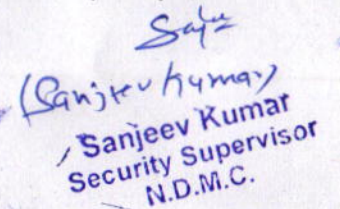 (Sanjeev Kumar)
Sanjeev Kumar
Security Supervisor
N.D.M.C.